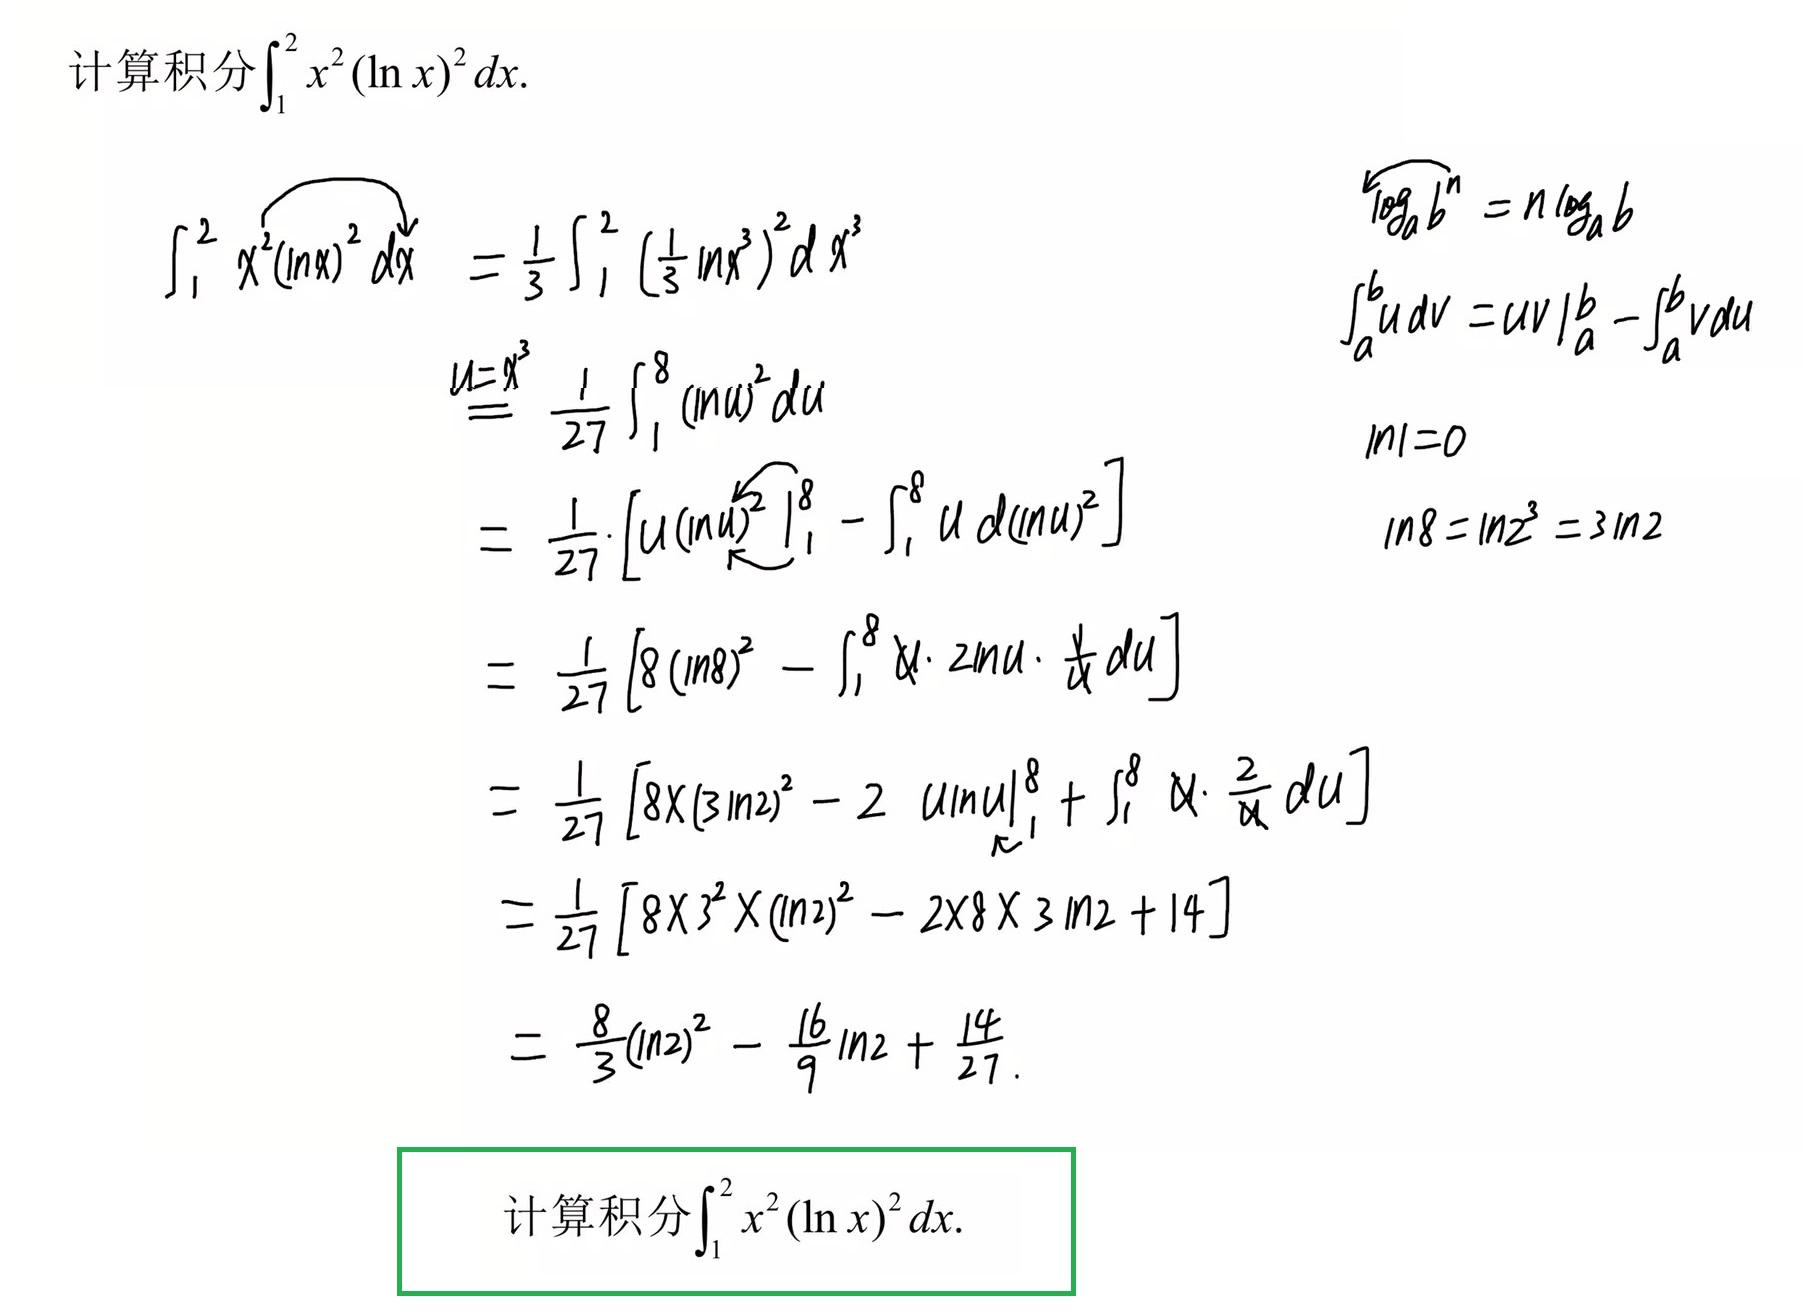 计算积分∫₁² x²(ln x)² dx.
∫₁² x²(lnx)² dx = 1/3 ∫₁² (1/3 lnx³)² d x³
u=x³ = 1/27 ∫₁⁸ (lnu)² du
= 1/27 · [u(lnu)² |₁⁸ − ∫₁⁸ u d(lnu)²]
= 1/27 [8(ln8)² − ∫₁⁸ u · 2lnu · 1/u du]
= 1/27 [8×(3ln2)² − 2 ulnu|₁⁸ + ∫₁⁸ u · 2/u du]
= 1/27 [8×3²×(ln2)² − 2×8×3ln2 + 14]
= 8/3 (ln2)² − 16/9 ln2 + 14/27.
logₐbⁿ = n logₐb
∫ₐᵇ u dv = uv|ₐᵇ − ∫ₐᵇ v du
ln1=0
ln8 = ln2³ = 3ln2
计算积分∫₁² x²(ln x)² dx.